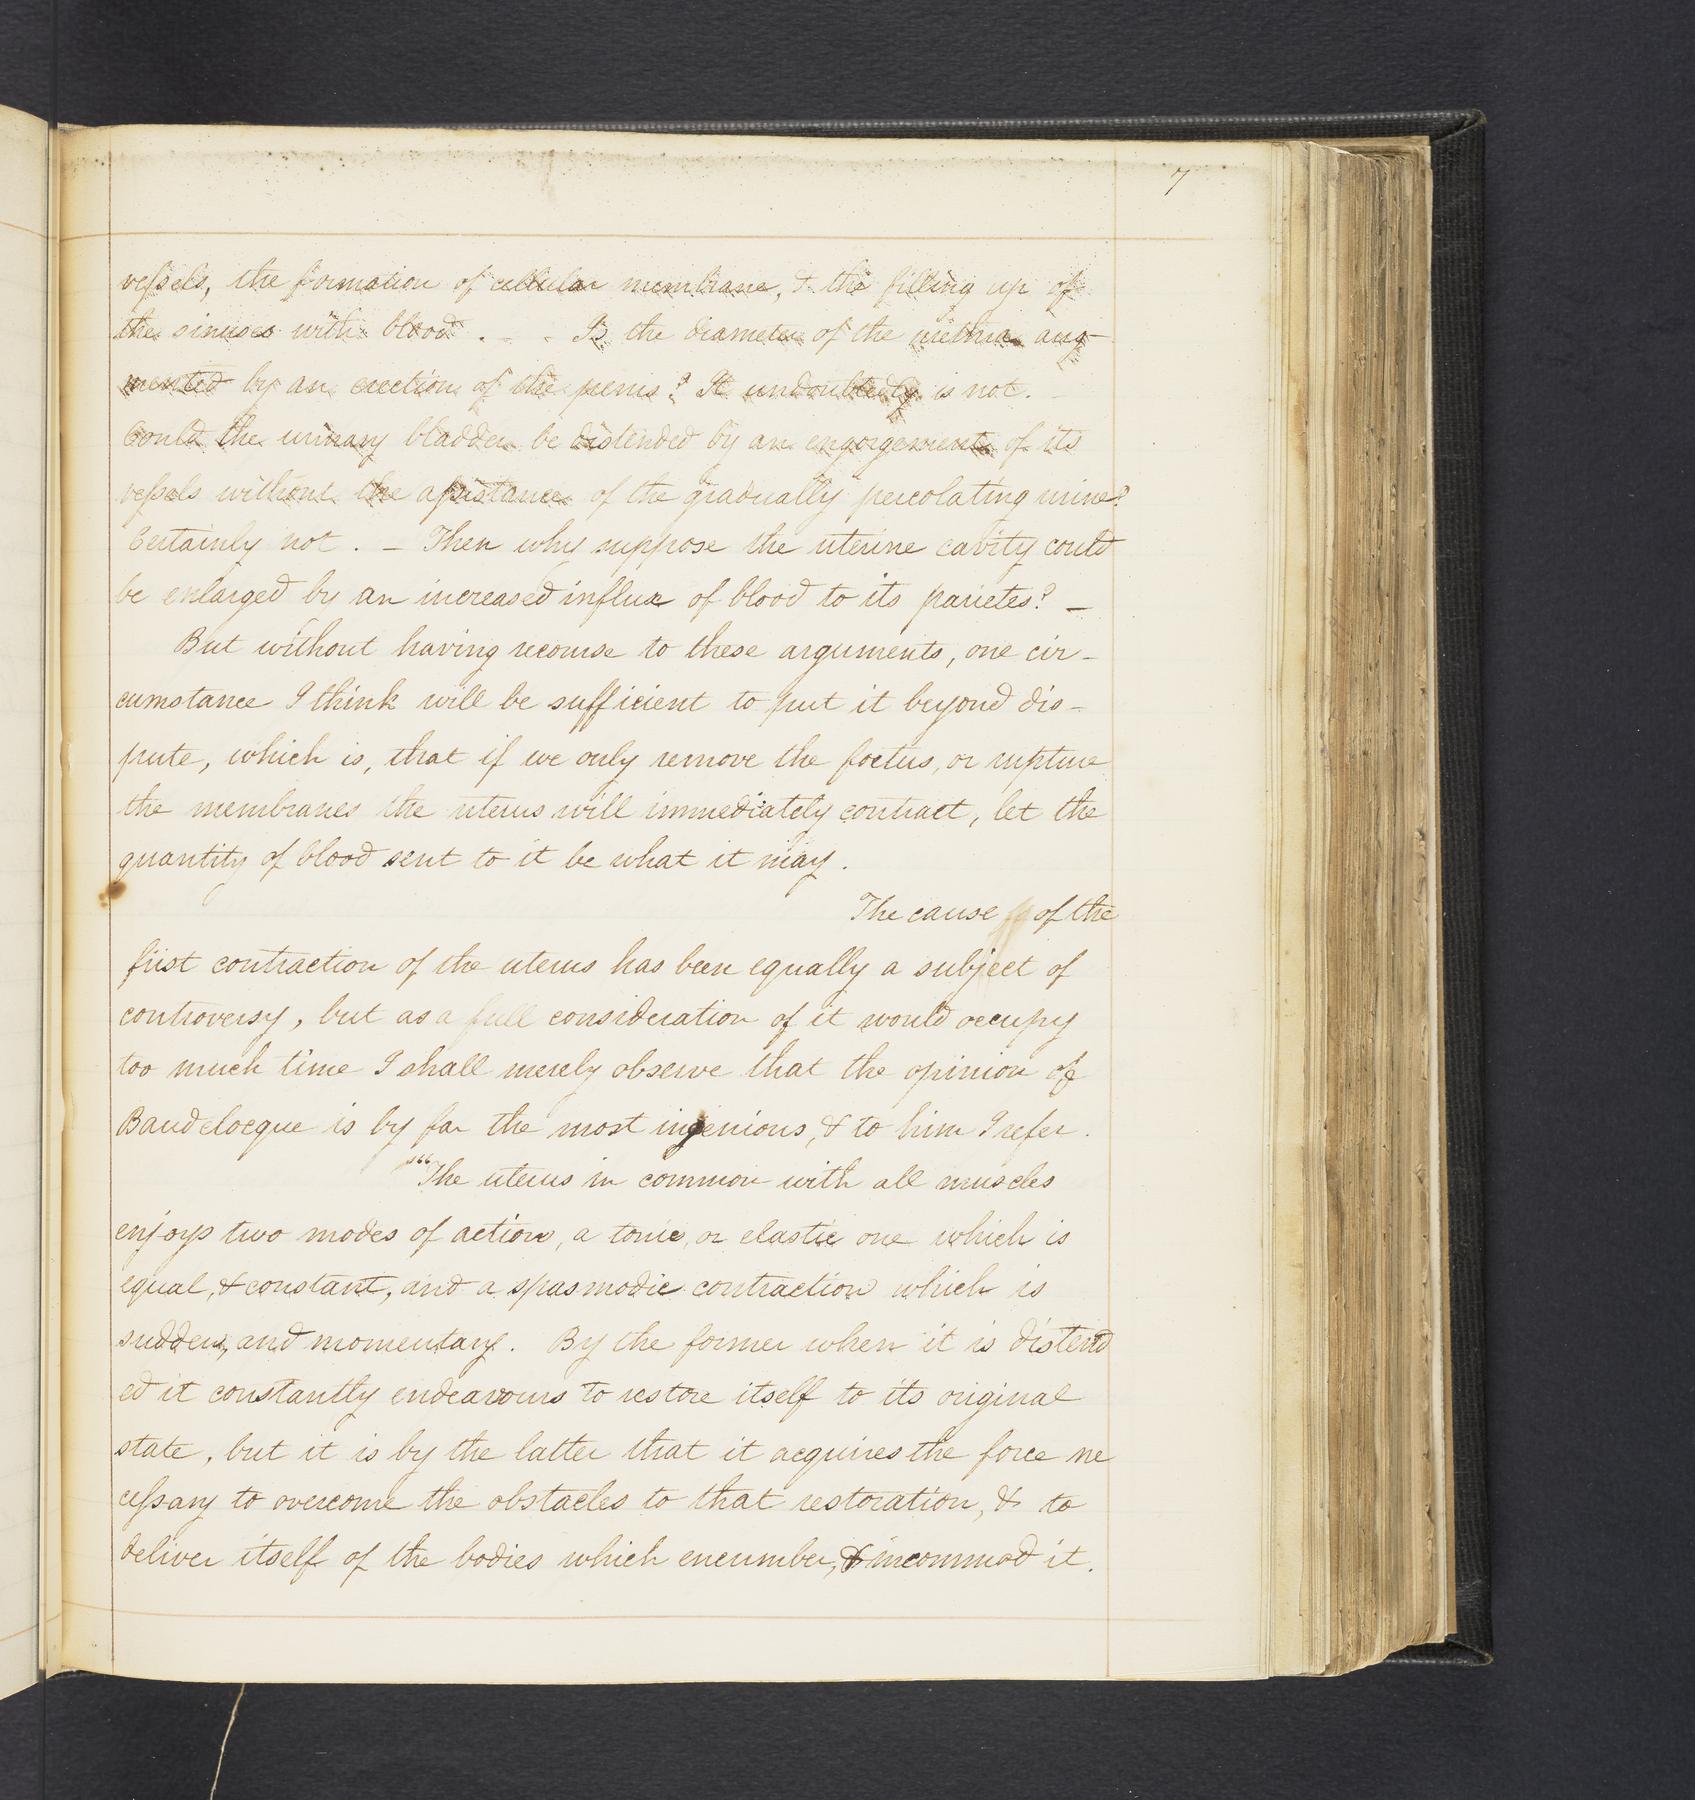 7
vessels, the formation of cellular membrane, & the filling up of
the sinuses with blood . - - Is the diameter of the urethra aug-
mented by an erection of the penis? It undoubtedly is not. -
Could the urinary bladder be distended by an engorgement of its
vessels without the assistance of the gradually percolating urine?
Certainly not . - Then why suppose the uterine cavity could
be enlarged by an increased influx of blood to its parietes? -
But without having recourse to these arguments, one cir-
cumstance I think will be sufficient to put it beyond dis-
pute, which is, that if we only remove the foetus, or rupture
the membranes the uterus will immediately contract, let the
quantity of blood sent to it be what it may.
The cause of the
first contraction of the uterus has been equally a subject of
controversy, but as a full consideration of it would occupy
too much time I shall merely observe that the opinion of
Baudelocque is by far the most ingenious, & to him I refer.
"The uterus in common with all muscles
enjoys two modes of action, a tonic, or elastic one which is
equal, & constant, and a spasmodic contraction which is
sudden, and momentary. By the former when it is distend
ed it constantly endeavours to restore itself to its original
state, but it is by the latter that it acquires the force ne
cessary to overcome the obstacles to that restoration, & to
deliver itself of the bodies which encumber, & incommod it.